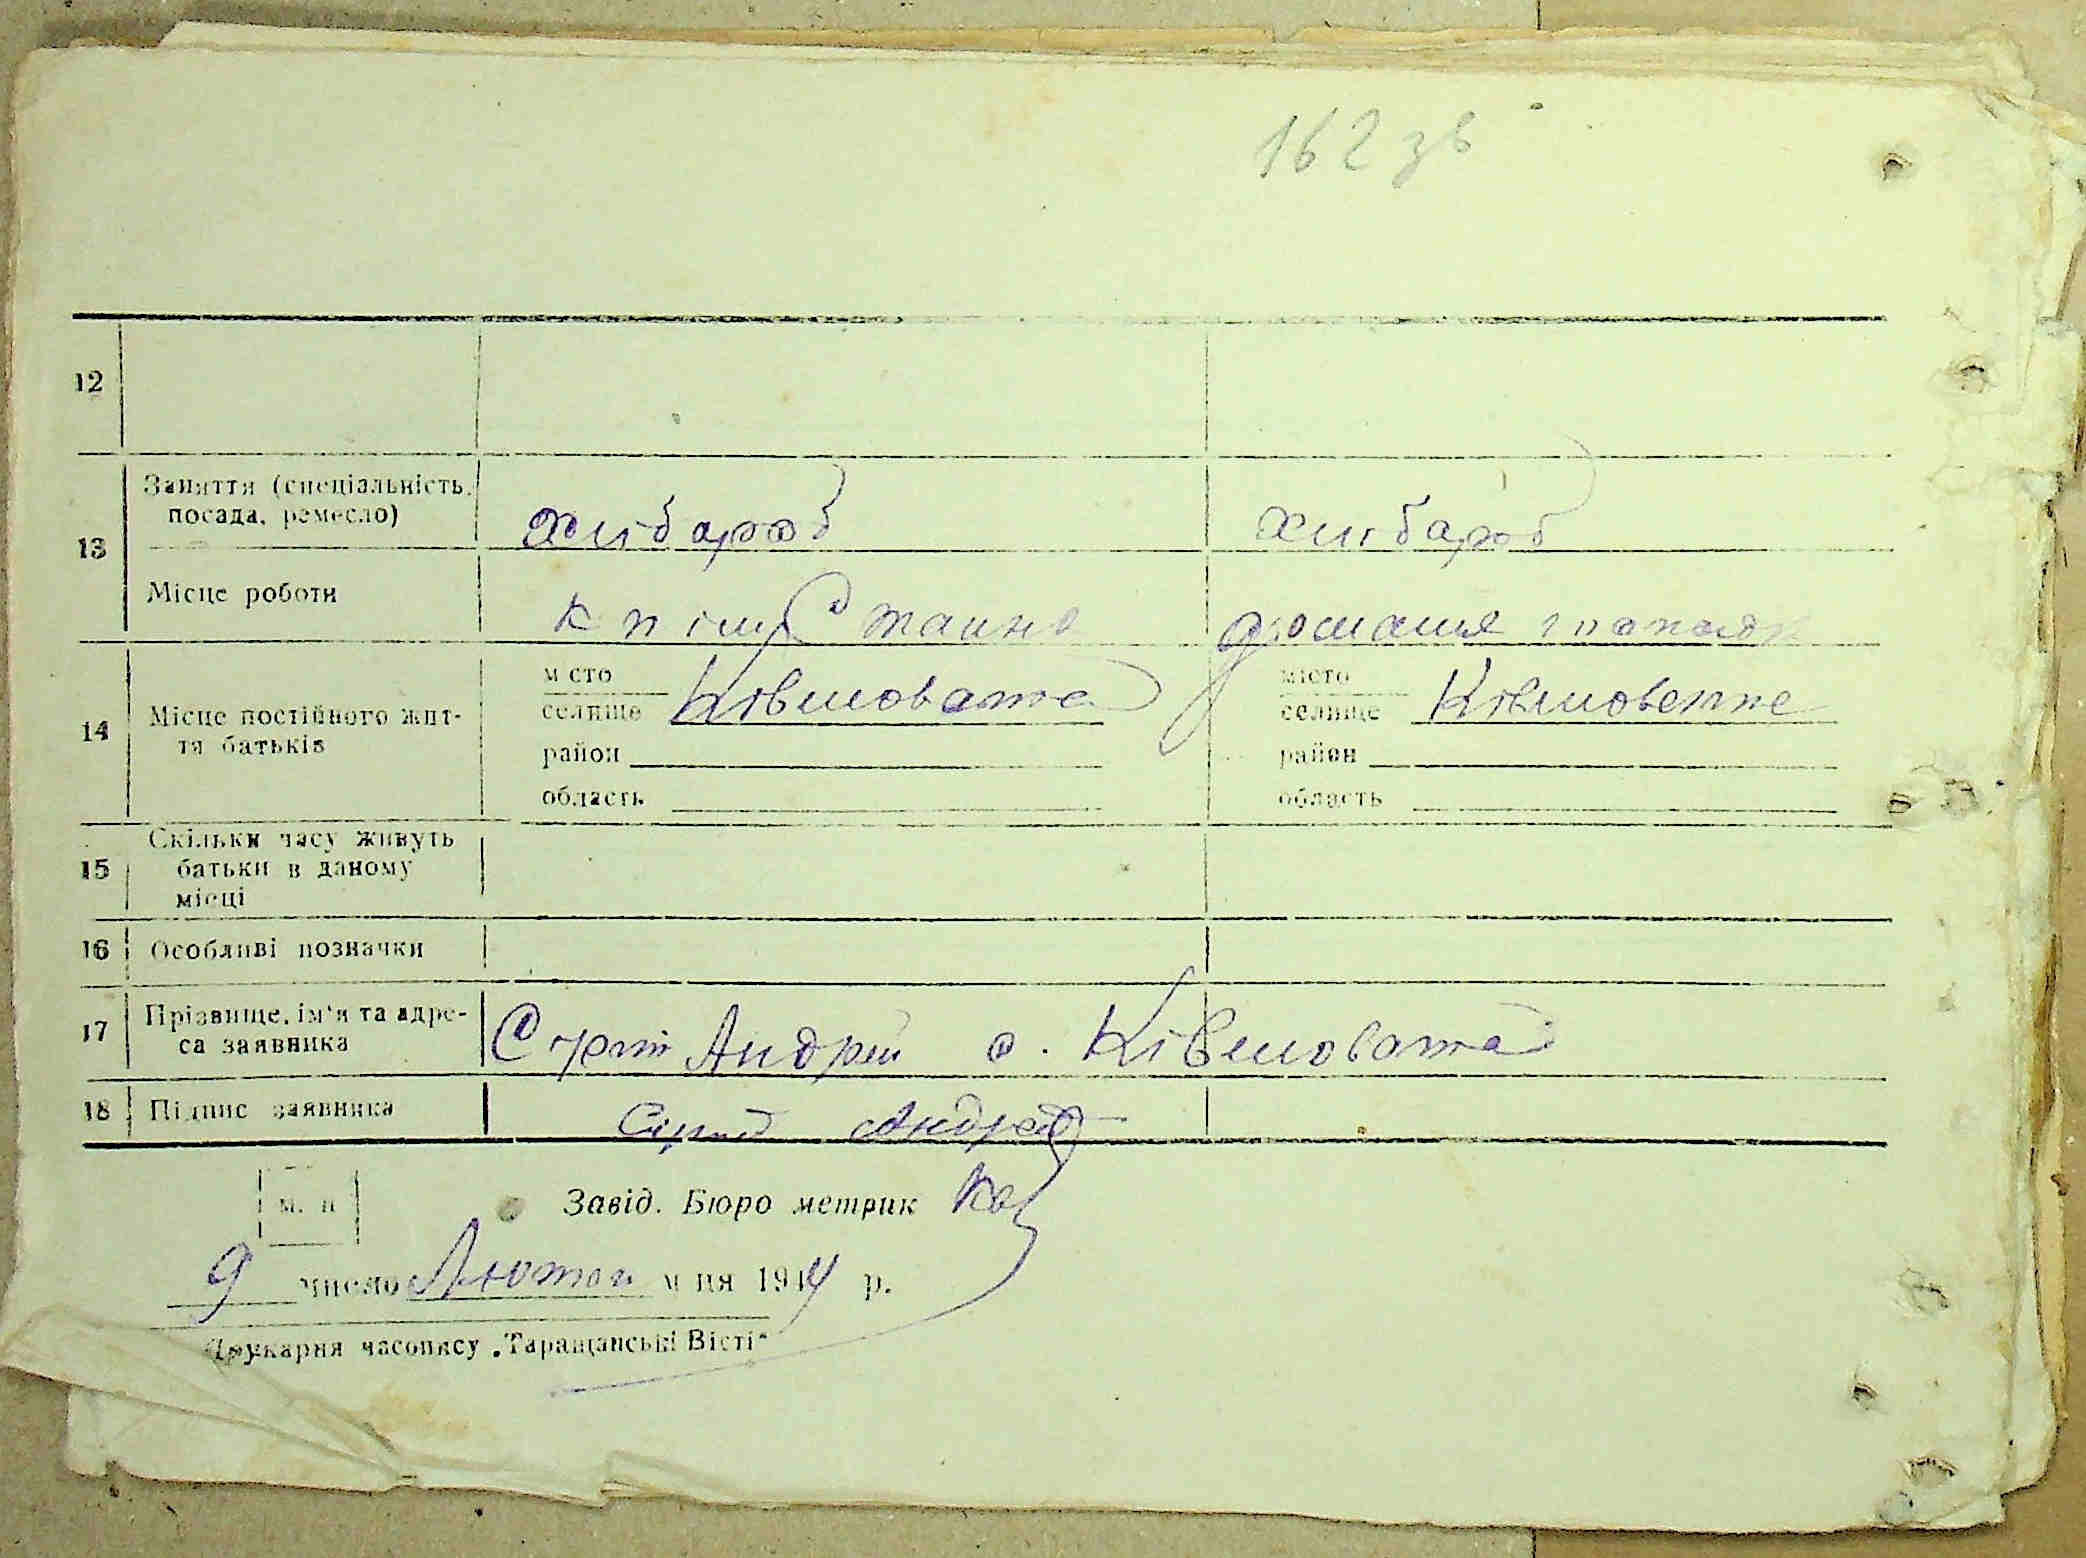 162 зв
12
13 Заняття (спеціальність, посада, ремесло) хлібароб хлібароб
Місце роботи
14 Місце постійного життя батьків
місто селище Ківшовата місто селище Ківшовата
район район
область область
15 Скільки часу живуть батьки в даному місці
16 Особливі позначки
17 Прізвище, ім'я та адреса заявника Андрій с. Ківшовата
18 Підпис заявника Андрей
м. п Завід. Бюро метрик
9 число м ця 1944 р.
Друкарня часопису „Таращанські Вісті"